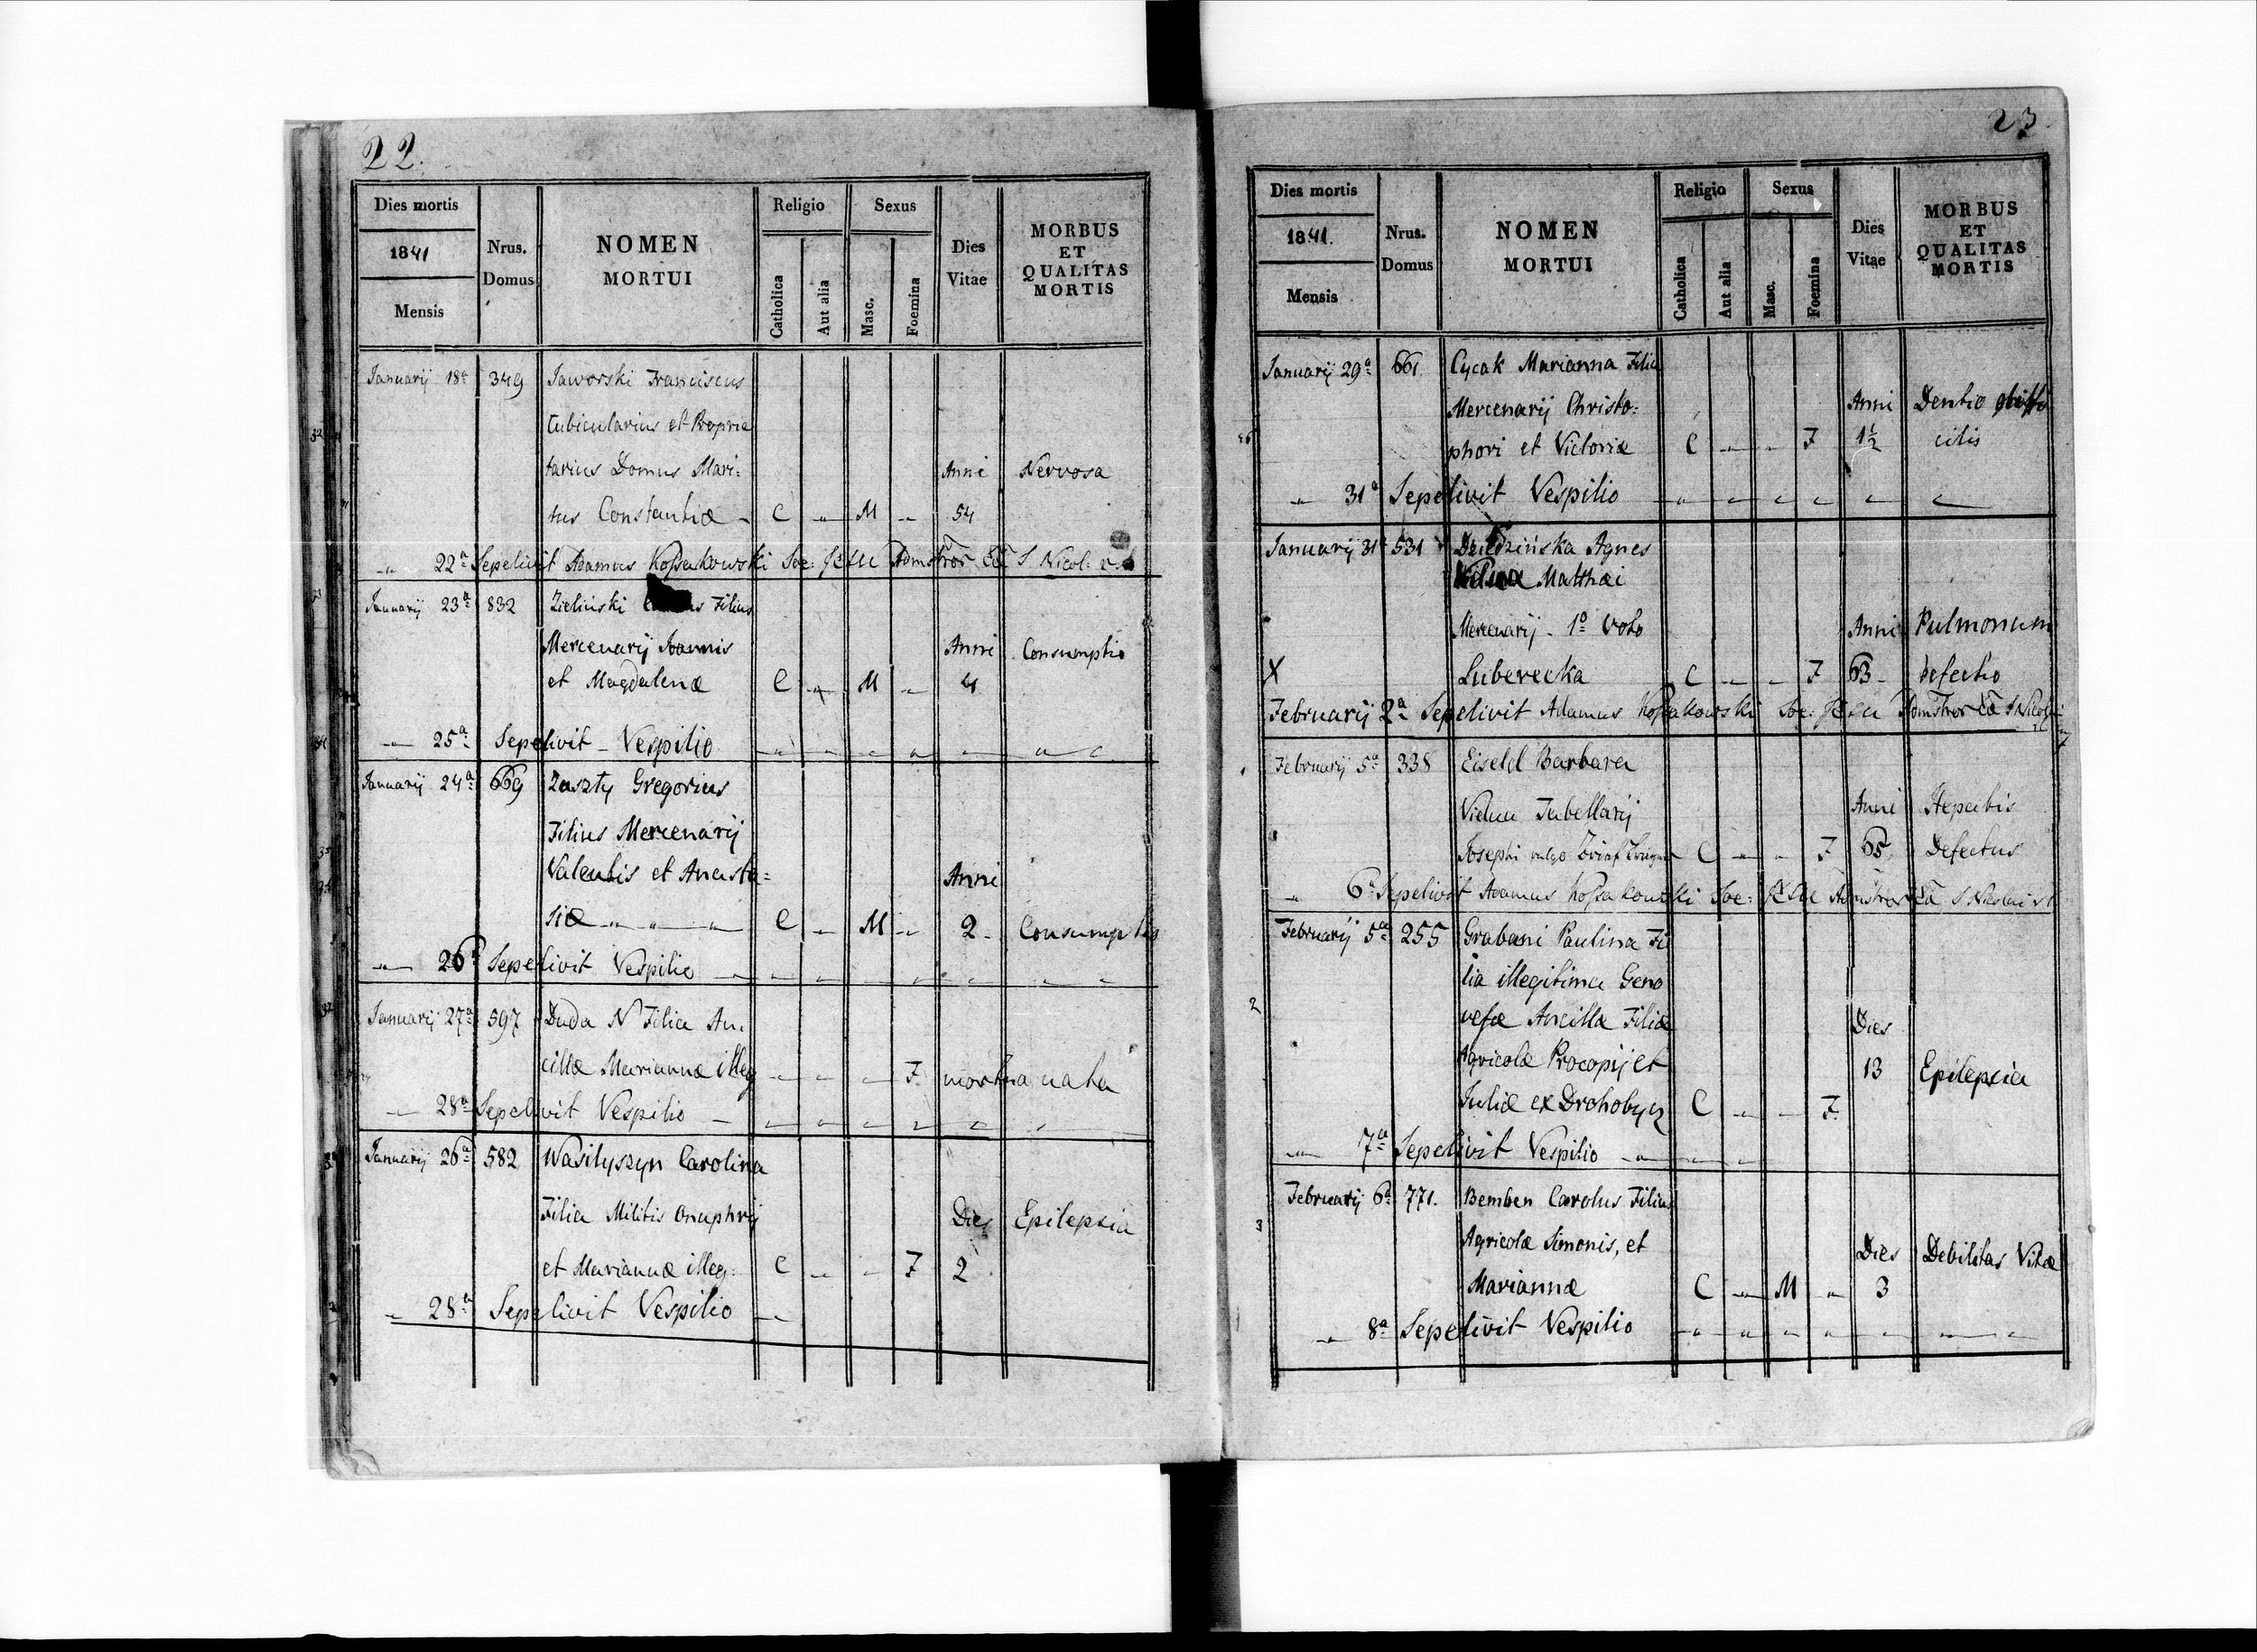 22.
Dies mortis
1841
Mensis
Nrus.
Domus
NOMEN
MORTUI
Religio
Catholica
Aut alia
Sexus
Masc.
Foemina
Dies
Vitae
MORBUS
ET
QUALITAS
MORTIS
Januarij 18a 349 Jaworski Franciscus
Cubicularius et Proprie
tarius Domus Mari:
Anni Nervosa
tus Constantiæ - C M 54
22a Sepelivit Adamus Kossakowski Soc: Jesu Admstror S Nicol:
Januarij 23a 832 Zieliński Filius
Mercenarij Joannis Anni Consumptio
et Magdalenæ C M 4
25a Sepelivit - Vespilio
Januarij 24a 669 Zaszty Gregorius
Filius Mercenarij
Valentis et Anasta= Anni
siæ C M 2 Consumptio
26a Sepelivit Vespilio
Januarij 27a 597 Duda N Filia An.
cillæ Mariannæ illeg F. mortua nata
28a Sepelivit Vespilio
Januarij 26a 582 Wasilyszyn Carolina
Filia Militis Onuphrij Dies Epilepsia
et Mariannæ illeg: C F 2
28a Sepelivit Vespilio
23.
Dies mortis
1841.
Mensis
Nrus.
Domus
NOMEN
MORTUI
Religio
Catholica
Aut alia
Sexus
Masc.
Foemina
Dies
Vitae
MORBUS
ET
QUALITAS
MORTIS
Januarij 29a 661 Cycak Marianna Filia
Mercenarij Christo: Anni Dentio diffi
phori et Victoriæ C F 1½ cilis
31a Sepelivit Vespilio
Januarij 31a 531 Dziedzińska Agnes
Vidua Matthæi
Mercenarij - 1o Voto Anni Pulmonum
X Luberecka C F 63 defectio
Februarij 2a Sepelivit Adamus Kossakowski Soc: Jesu Admstror
Februarij 5a 338 Eiseld Barbara
Vidua Tabellarij Anni Hepatis
Josephi vulgo C F 65 Defectus
6a Sepelivit Adamus Kossakowski Soc: Jesu Admstror S Nicolai
Februarij 5a 255 Grabani Paulina Fi
lia illegitima Geno
vefæ Ancilla Filiæ Dies
Agricolæ Procopij et 13 Epilepsia
Juliæ ex Drohobycz C F.
7a Sepelivit Vespilio
Februarij 6a 771. Bemben Carolus Filius
Agricolæ Simonis, et Dies Debilitas Vitæ
Mariannæ C M 3
8a Sepelivit Vespilio